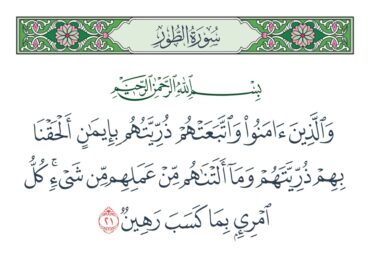 سُورَةُ الطُّورِ
بِسْمِ اللَّهِ الرَّحْمَٰنِ الرَّحِيمِ
وَالَّذِينَ ءَامَنُوا۟ وَاتَّبَعَتْهُمْ ذُرِّيَّتُهُم بِإِيمَٰنٍ أَلْحَقْنَا
بِهِمْ ذُرِّيَّتَهُمْ وَمَآ أَلَتْنَٰهُم مِّنْ عَمَلِهِم مِّن شَىْءٍۚ كُلُّ
ٱمْرِئٍۭ بِمَا كَسَبَ رَهِينٌ ٢١